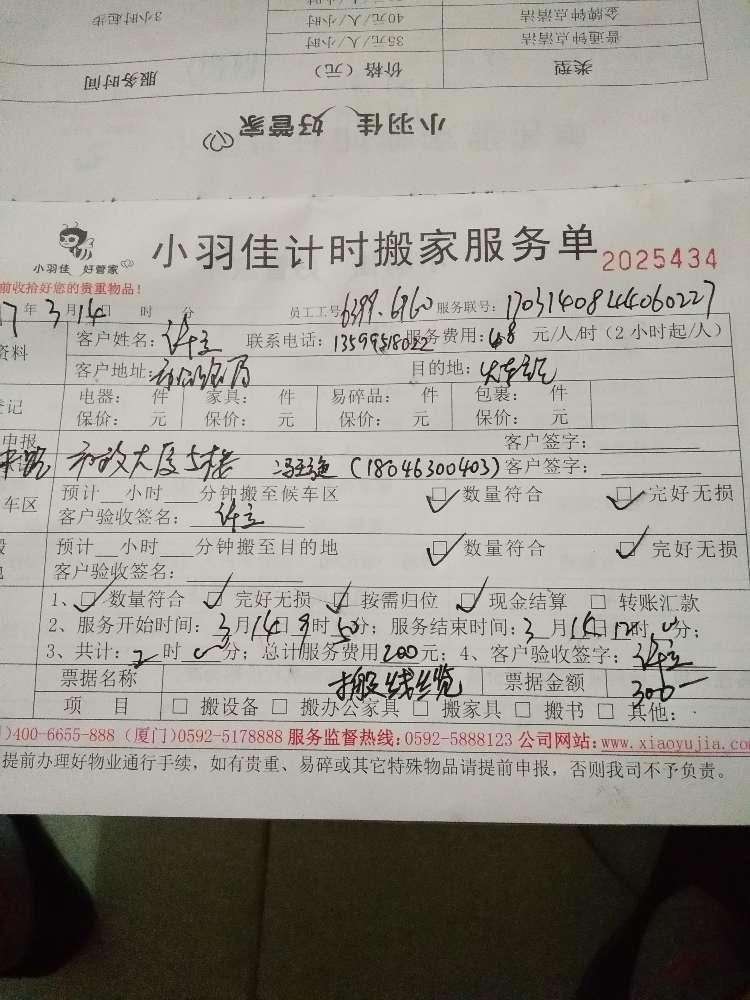 3小时起步
40元/人/小时
金牌钟点清洁
35元/人/小时
普通钟点清洁
服务时间
价格（元）
类型
小羽佳 好管家
小羽佳 好管家
小羽佳计时搬家服务单 2025434
前收拾好您的贵重物品！
7年3月14日 时 分 员工工号 6399.6960 服务联号：17031408444060227
资料 客户姓名：许立 联系电话：13599518022 服务费用：48 元/人/时（2小时起/人）
客户地址： 局 目的地：
登记 电器： 件 家具： 件 易碎品： 件 包裹： 件
保价： 元 保价： 元 保价： 元 保价： 元
申报 客户签字：
大厦5楼 (18046300403) 客户签字：
车区 预计___小时___分钟搬至候车区 ☑数量符合 ☑完好无损
客户验收签名：许立
预计___小时___分钟搬至目的地 ☑数量符合 ☑完好无损
客户验收签名：
1、☑数量符合 ☑完好无损 ☑按需归位 ☑现金结算 □转账汇款
2、服务开始时间：3月14日9时50分；服务结束时间：3月14日12时0分；
3、共计：2时0分；总计服务费用200元；4、客户验收签字：许立
票据名称 搬线缆 票据金额 300-
项 目 □搬设备 □搬办公家具 □搬家具 □搬书 □其他：
)400-6655-888 (厦门)0592-5178888 服务监督热线：0592-5888123 公司网站：www.xiaoyujia.com
提前办理好物业通行手续，如有贵重、易碎或其它特殊物品请提前申报，否则我司不予负责。